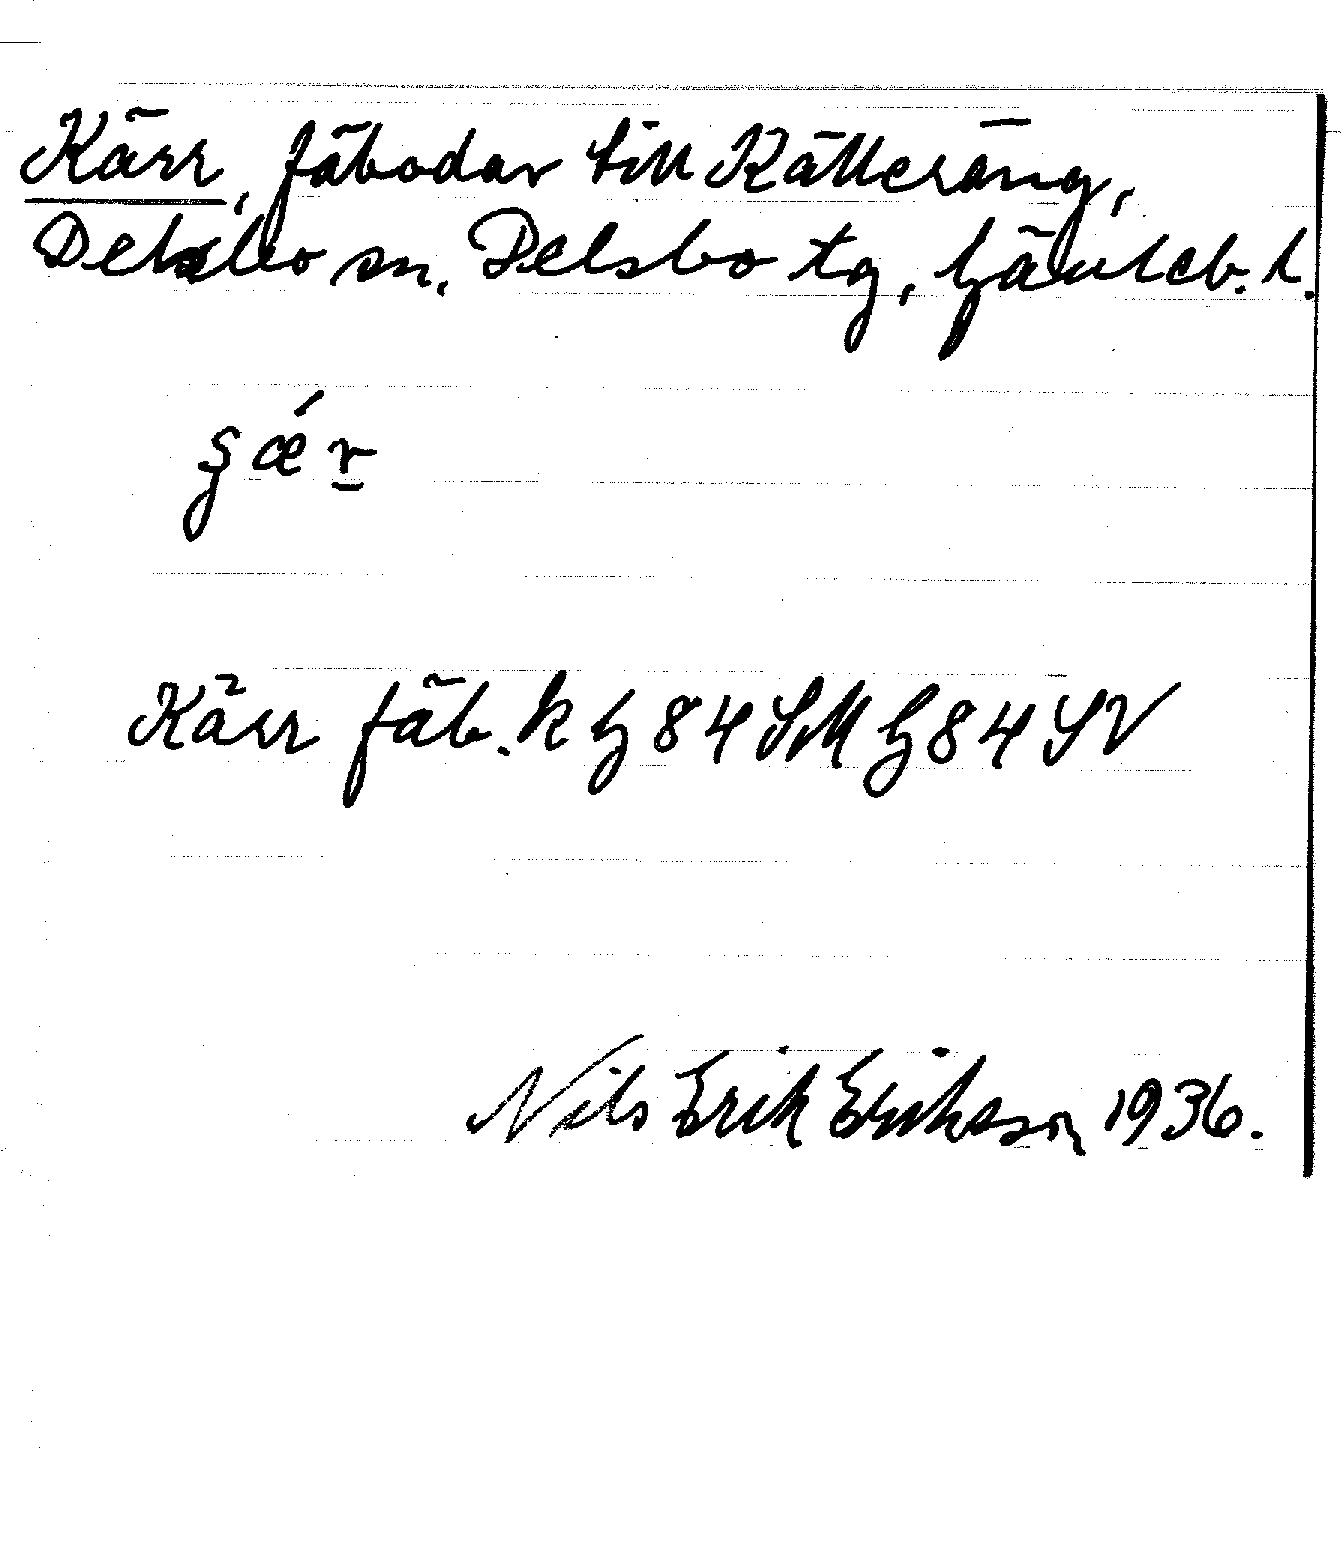 Kärr, fäbodar till Källeräng,
Delsbo sn, Delsbo tg, Gävleb. l.
ʂǽr̲
Kärr fäb. k G 84 SM G 84 SV
Nils Erik Eriksson 1936.